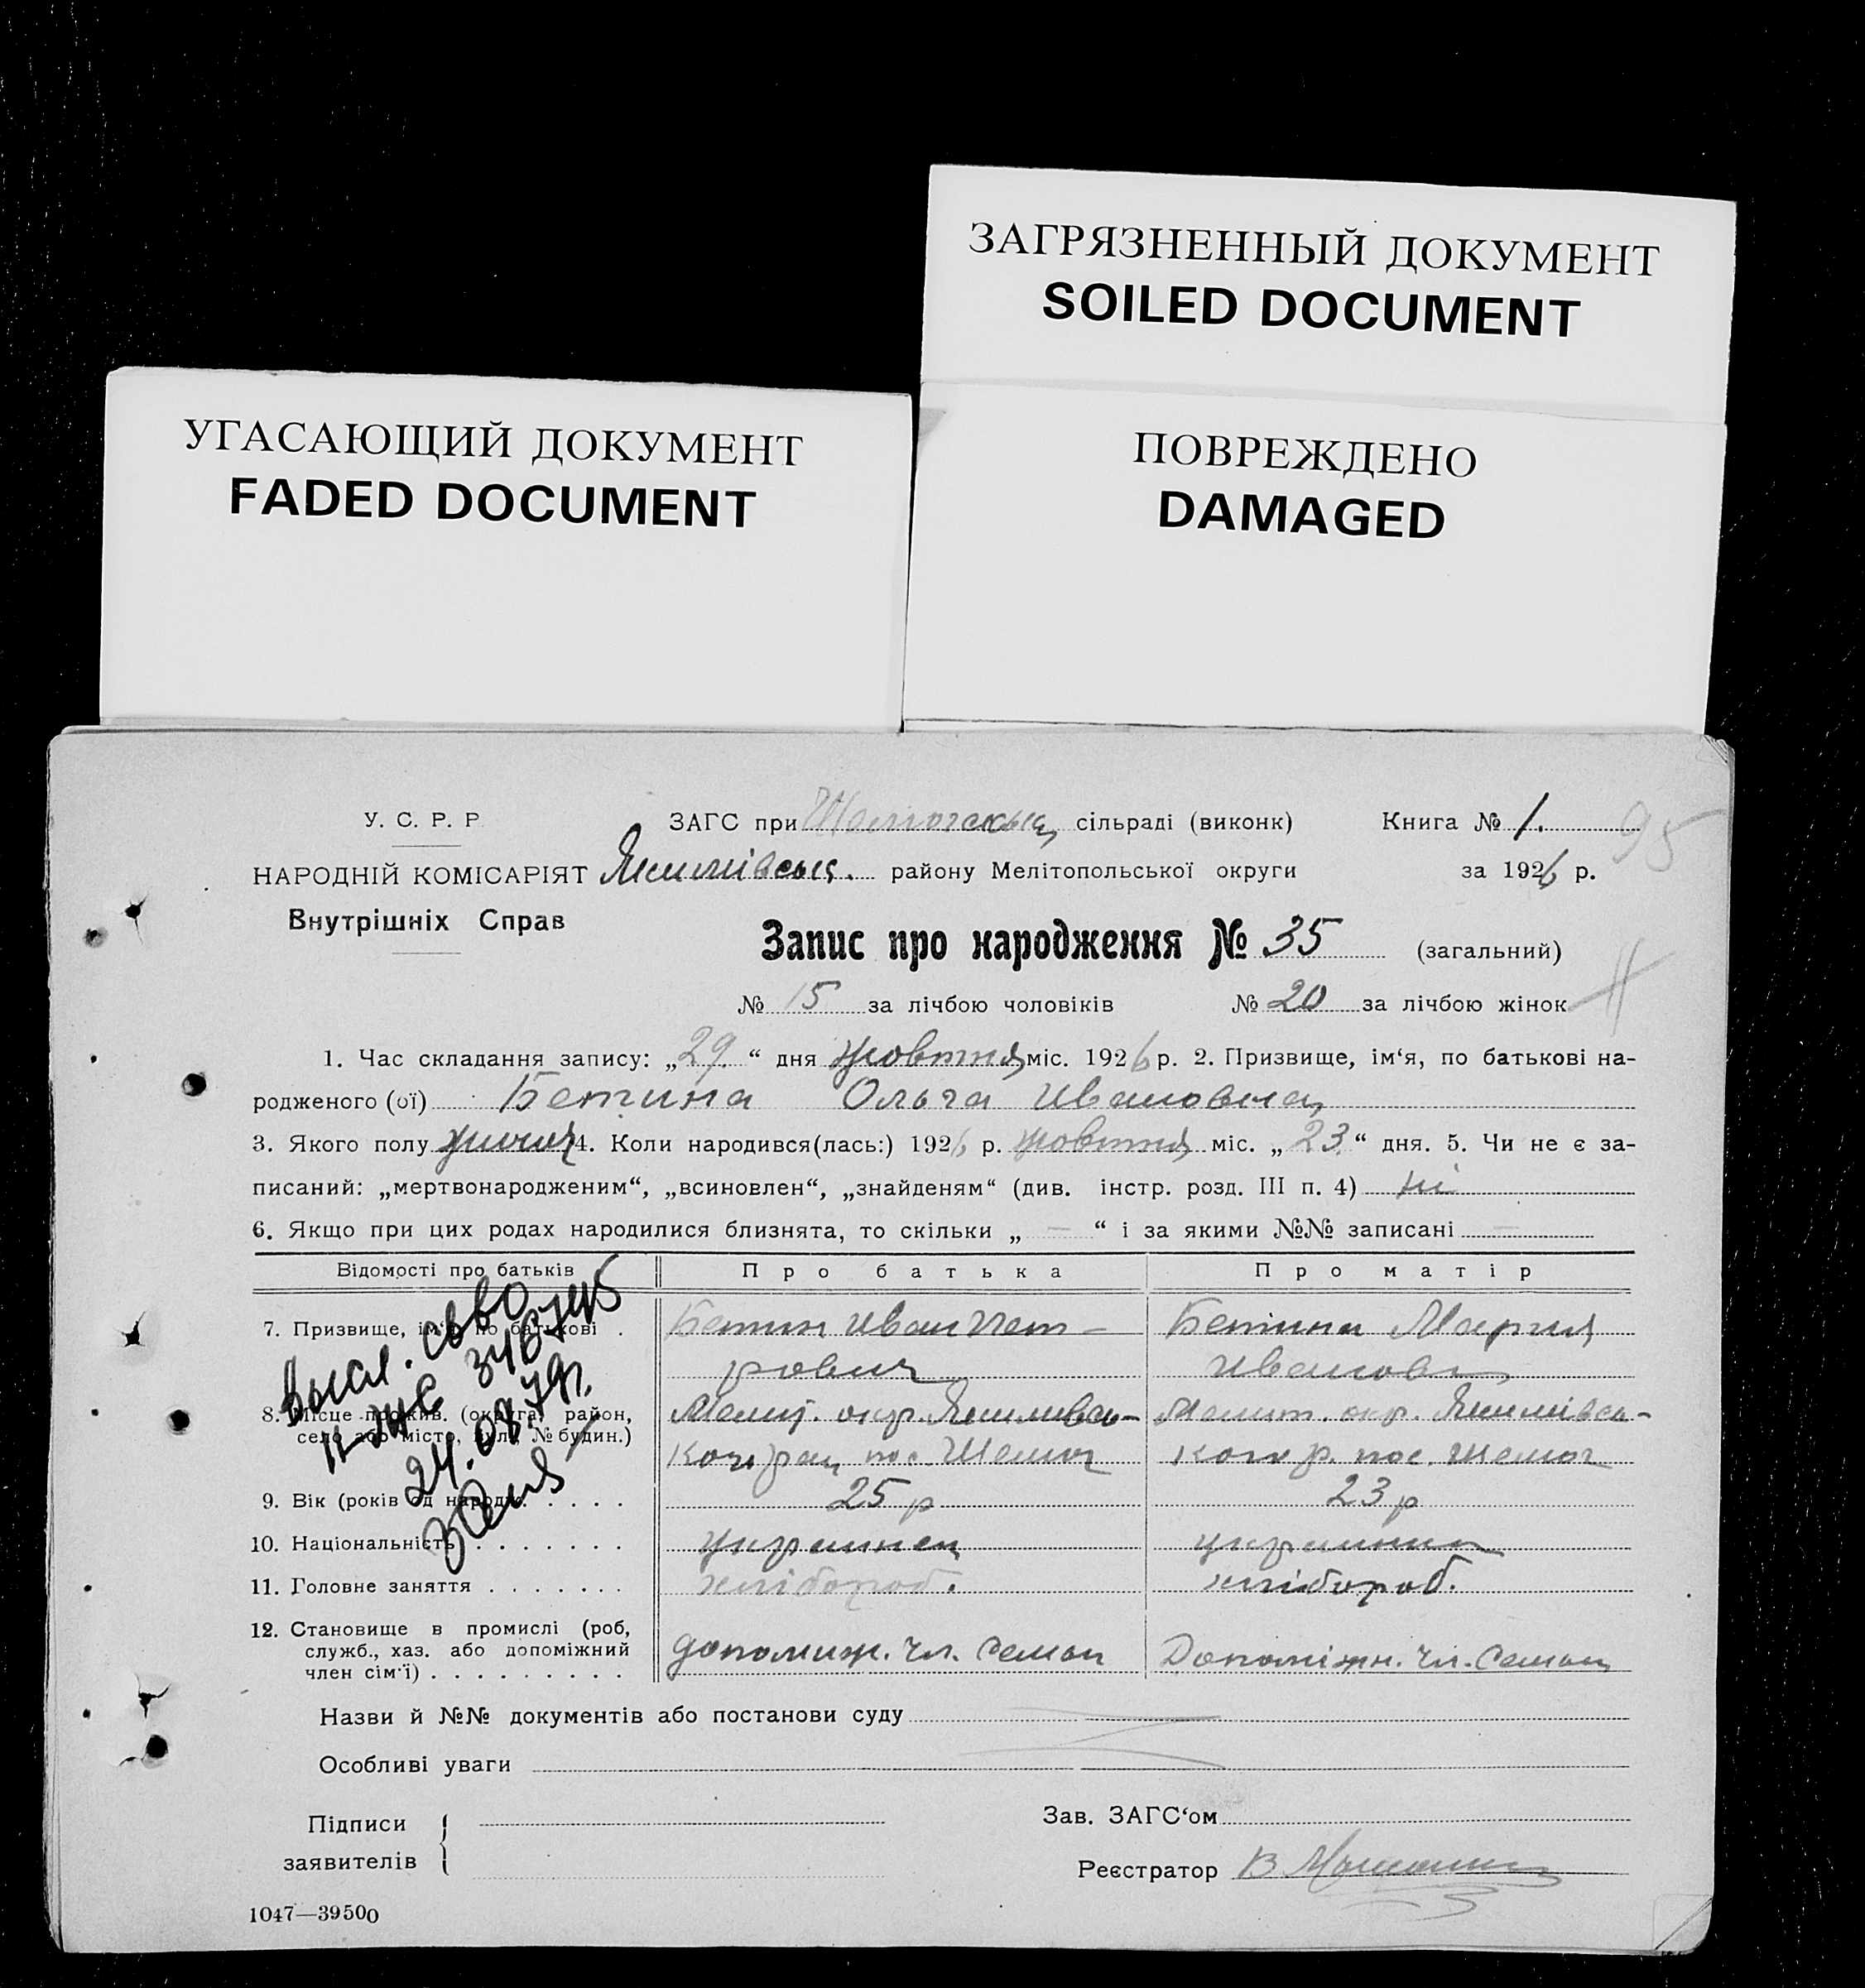 ЗАГРЯЗНЕННЫЙ ДОКУМЕНТ
SOILED DOCUMENT
УГАСАЮЩИЙ ДОКУМЕНТ
FADED DOCUMENT
ПОВРЕЖДЕНО
DAMAGED
У. С. Р. Р ЗАГС при сільраді (виконк) Книга № 1. 95
НАРОДНІЙ КОМІСАРІЯТ Якимівськ. району Мелітопольської округи за 1926 р.
Внутрішніх Справ
Запис про народження № 35 (загальний)
№ 15 за лічбою чоловіків № 20 за лічбою жінок
1. Час складання запису: „29“ дня жовтня міс. 1926 р. 2. Призвище, ім‘я, по батькові на-
родженого (ої) Бетина Ольга Ивановна
3. Якого полу 4. Коли народився(лась:) 1926 р. жовтня міс. „23“ дня. 5. Чи не є за-
писаний: „мертвонародженим“, „всиновлен“, „знайденям“ (див. інстр. розд. III п. 4) ні
6. Якщо при цих родах народилися близнята, то скільки „ — “ і за якими №№ записані —
Відомості про батьків Про батька Про матір
7. Призвище, ім‘я по батькові . Бетин Иван Пет-
рович
Бетина Мария
Иванов
8. Місце прожив. (округа, район,
село або місто, вул. № будин.)
Мелит. окр. Якимивсь-
кого рац пос. Шелюг
Мелит. окр. Якимівсь-
кого р. пос. Шелюг
9. Вік (років од народж. . . . . 25 р 23 р
10. Національність . . . . . . . украинец украинка
11. Головне заняття . . . . . . . хлібороб. хлібороб.
12. Становище в промислі (роб,
служб., хаз. або допоміжний
член сім‘ї) . . . . . . . . .
допомиж. чл. семьи Допоміжн. чл. семьи
высл. св-во
II-ЖС 346745
24.08.79г.
Назви й №№ документів або постанови суду
Особливі уваги
Підписи
заявителів
Зав. ЗАГС‘ом
Реєстратор В.
1047—39500